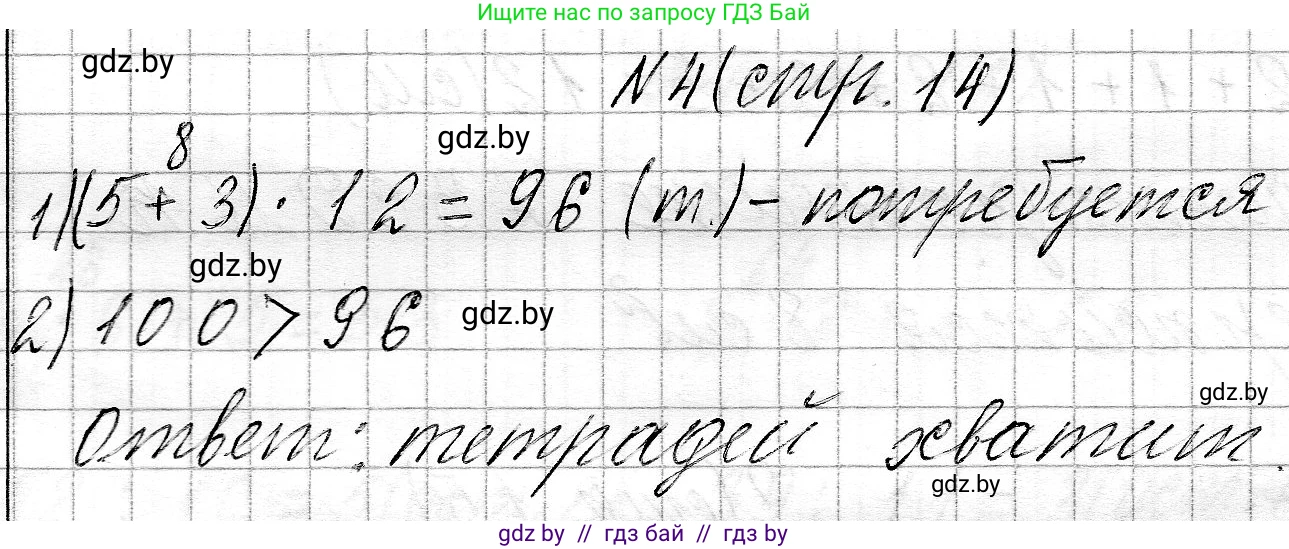 Ищите нас по запросу ГДЗ Бай
gdz.by
N4 (стр. 14)
gdz.by
8
1) (5 + 3) · 12 = 96 (т.) – потребуется
gdz.by
2) 100 > 96
gdz.by
gdz.by
Ответ: тетрадей хватит.
gdz.by
gdz by // гдз бай // gdz by